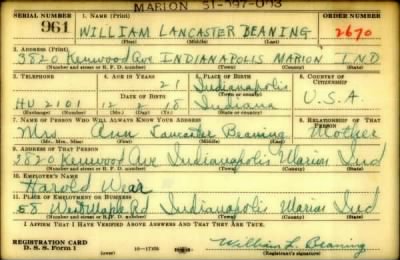 MARION 31-997-093
SERIAL NUMBER 1. NAME (Print) ORDER NUMBER
961 WILLIAM LANCASTER BEANING 2670
(First) (Middle) (Last)
2. ADDRESS (Print)
3820 Kenwood Ave INDIANAPOLIS MARION IND
(Number and street or R. F. D. number) (Town) (County) (State)
3. TELEPHONE 4. AGE IN YEARS 5. PLACE OF BIRTH 6. COUNTRY OF CITIZENSHIP
21 Indianapolis
DATE OF BIRTH
HU 2101 12 2 18 Indiana U.S.A.
(Exchange) (No.) (Mo.) (Day) (Yr.) (State or country)
7. NAME OF PERSON WHO WILL ALWAYS KNOW YOUR ADDRESS 8. RELATIONSHIP OF THAT PERSON
Mrs Ann Lancaster Beaning Mother
(Mr., Mrs., Miss) (First) (Middle) (Last)
9. ADDRESS OF THAT PERSON
3820 Kenwood Ave Indianapolis Marion Ind
(Number and street or R. F. D. number) (Town) (County) (State)
10. EMPLOYER'S NAME
Harold Wear
11. PLACE OF EMPLOYMENT OR BUSINESS
58 West Maple Rd Indianapolis Marion Ind
(Number and street or R. F. D. number) (Town) (County) (State)
I AFFIRM THAT I HAVE VERIFIED ABOVE ANSWERS AND THAT THEY ARE TRUE.
REGISTRATION CARD
D. S. S. Form 1 William L. Beaning
(Registrant's signature)